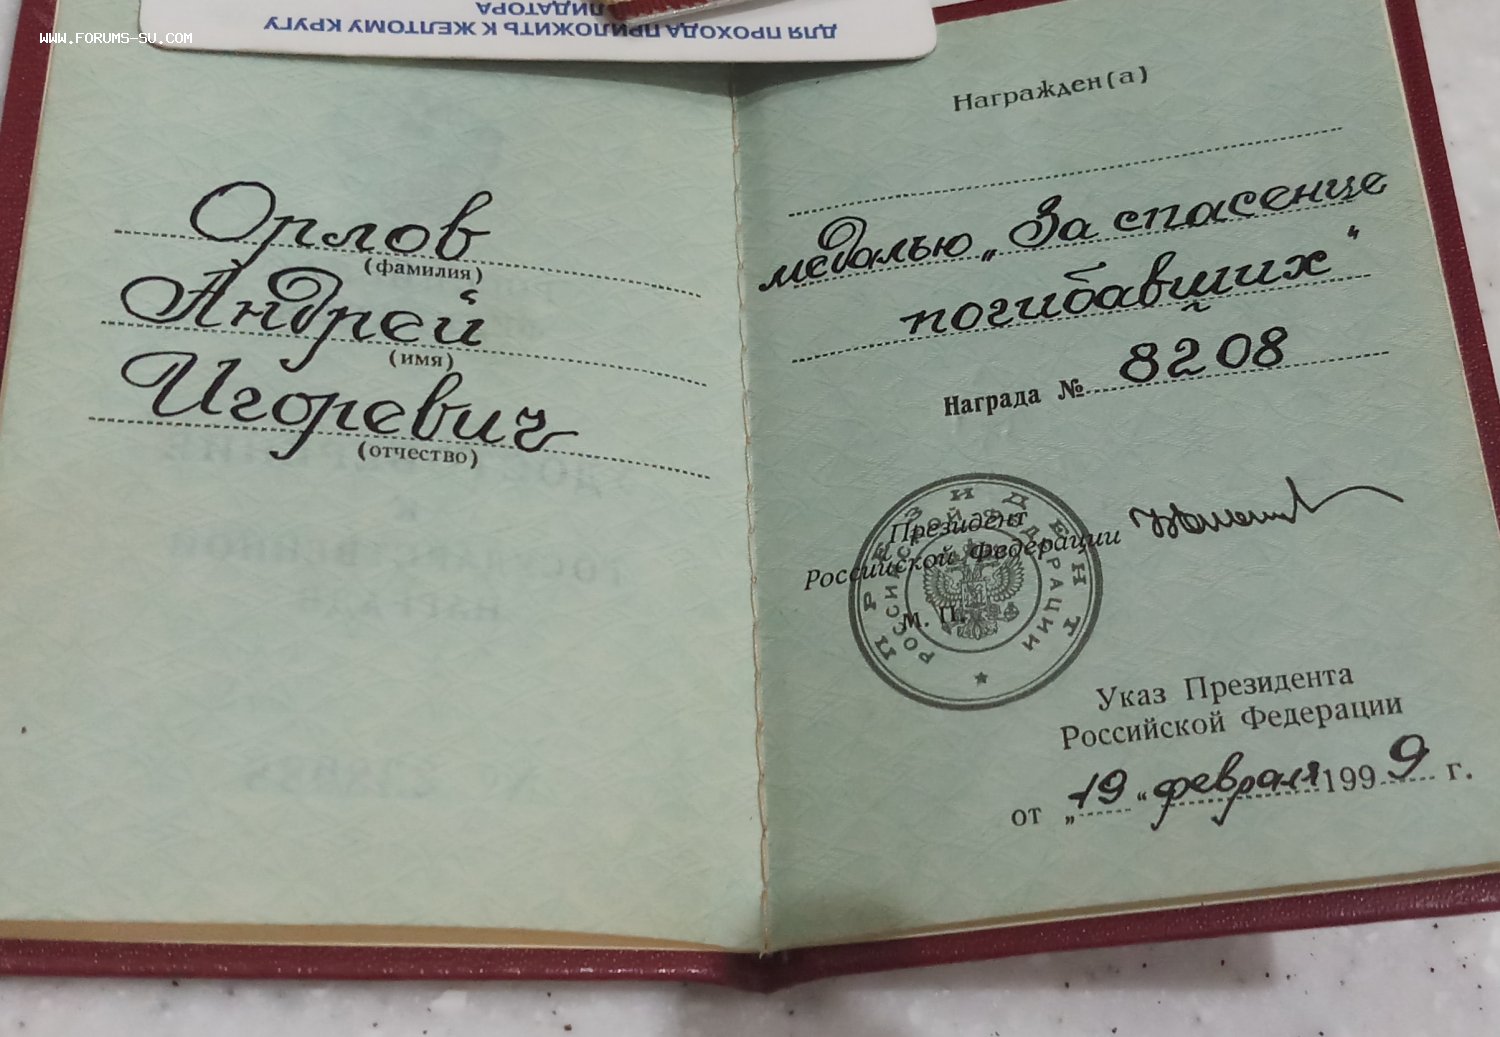 WWW.FORUMS-SU.COM
ДЛЯ ПРОХОДА ПРИЛОЖИТЬ К ЖЕЛТОМУ КРУГУ
Орлов
(фамилия)
Андрей
(имя)
Игоревич
(отчество)
Награжден(а)
медалью „За спасение
погибавших"
Награда № 8208
Президент
Российской Федерации
М. П.
ПРЕЗИДЕНТ
РОССИЙСКОЙ ФЕДЕРАЦИИ
Указ Президента
Российской Федерации
от „19" февраля 1999 г.